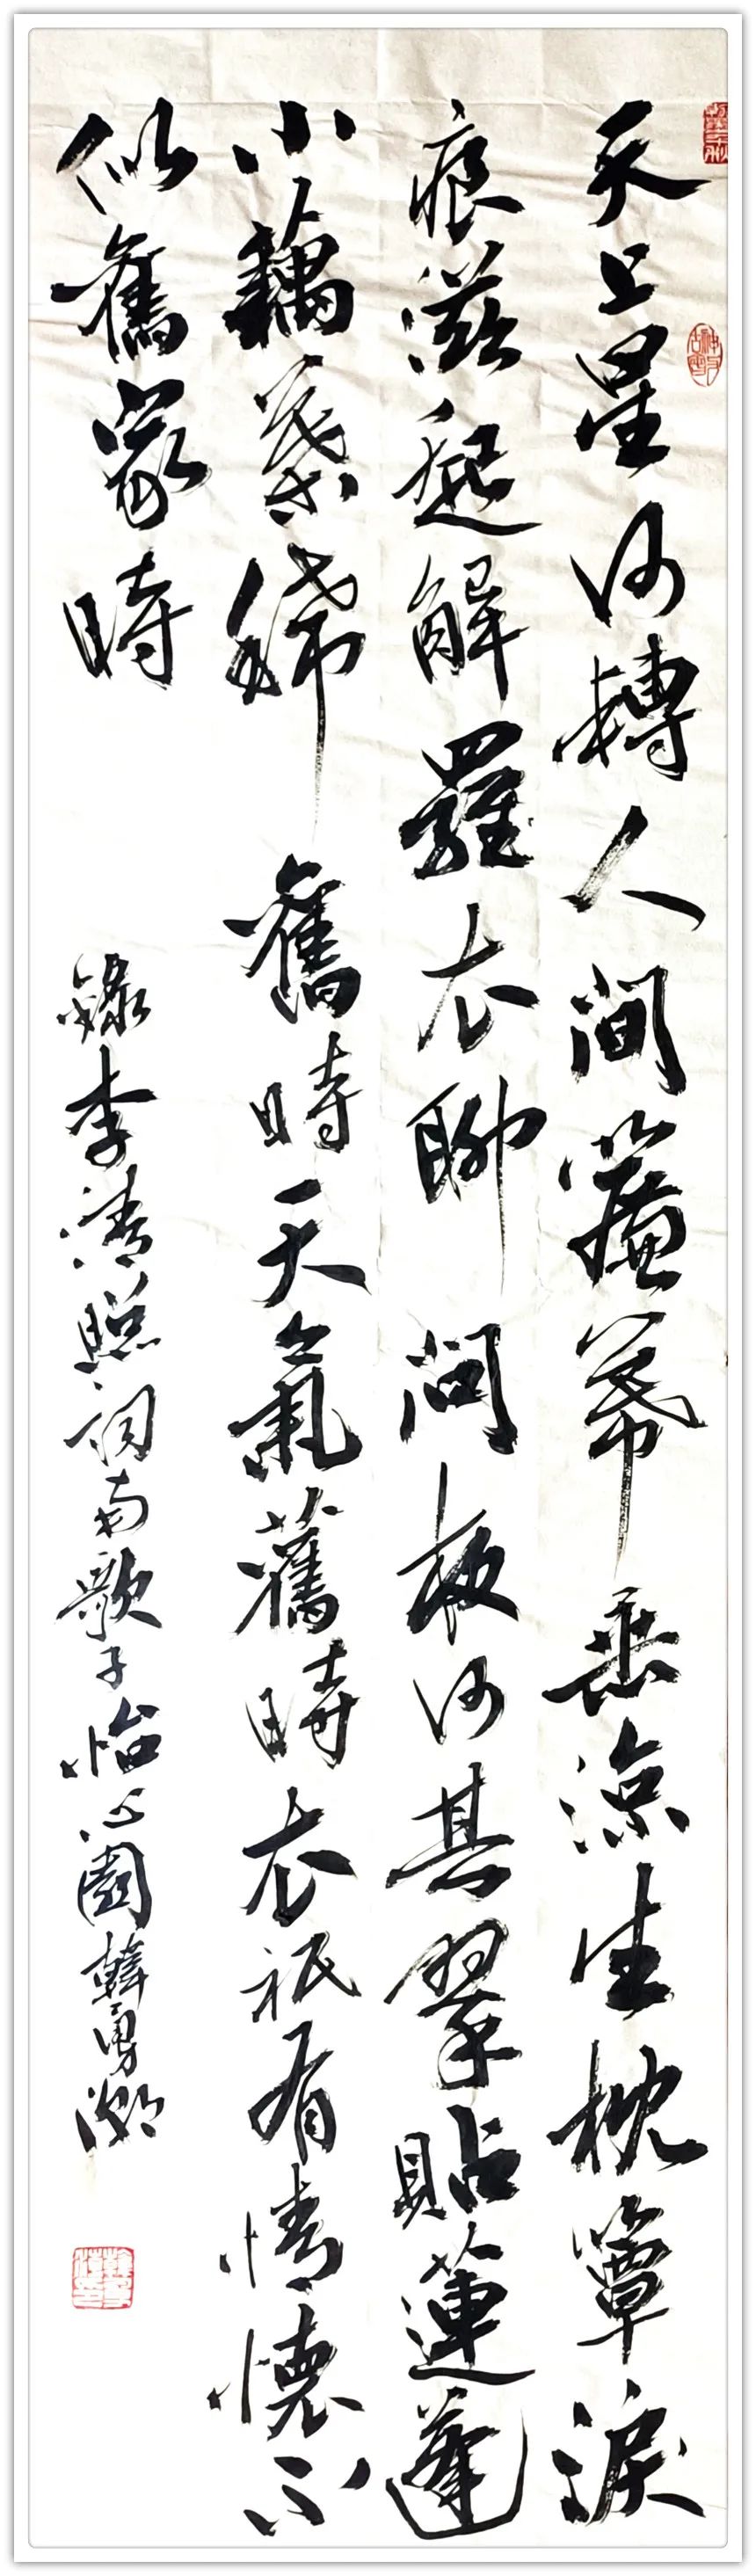 天上星河轉人間簾幕垂涼生枕簟淚
痕滋起解羅衣聊問夜何其翠貼蓮蓬
小藕葉稀舊時天氣舊時衣衹有情懷不
似舊家時
錄李清照詞南歌子怡心園韓勇